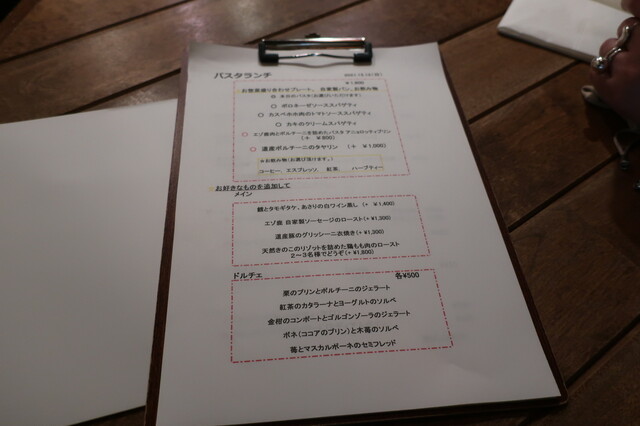 パスタランチ
¥1,800
お惣菜盛り合わせプレート、自家製パン、お飲み物
ボロネーゼソーススパゲティ
カスベホホ肉のトマトソーススパゲティ
カキのクリームスパゲティ
エゾ鹿肉とポルチーニを詰めたパスタ アニョロッティプリン
(+ ¥800)
道産ポルチーニのタヤリン (+ ¥1,000)
※お飲み物(お選び頂けます。)
コーヒー、エスプレッソ、紅茶、ハーブティー
お好きなものを追加して
メイン
鱈とタモギタケ、あさりの白ワイン蒸し (+ ¥1,400)
エゾ鹿 自家製ソーセージのロースト(+ ¥1,300)
道産豚のグリッシーニ衣焼き(+ ¥1,300)
天然きのこのリゾットを詰めた鶏もも肉のロースト
2~3名様でどうぞ(+ ¥1,800)
ドルチェ 各¥500
栗のプリンとポルチーニのジェラート
紅茶のカタラーナとヨーグルトのソルベ
金柑のコンポートとゴルゴンゾーラのジェラート
ボネ(ココアのプリン)と木苺のソルベ
苺とマスカルポーネのセミフレッド